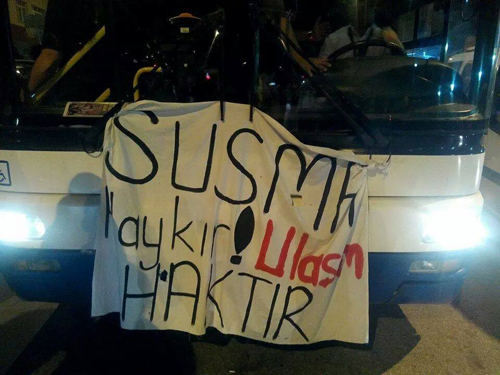 SUSMA
Haykır! Ulaşım
HAKTIR